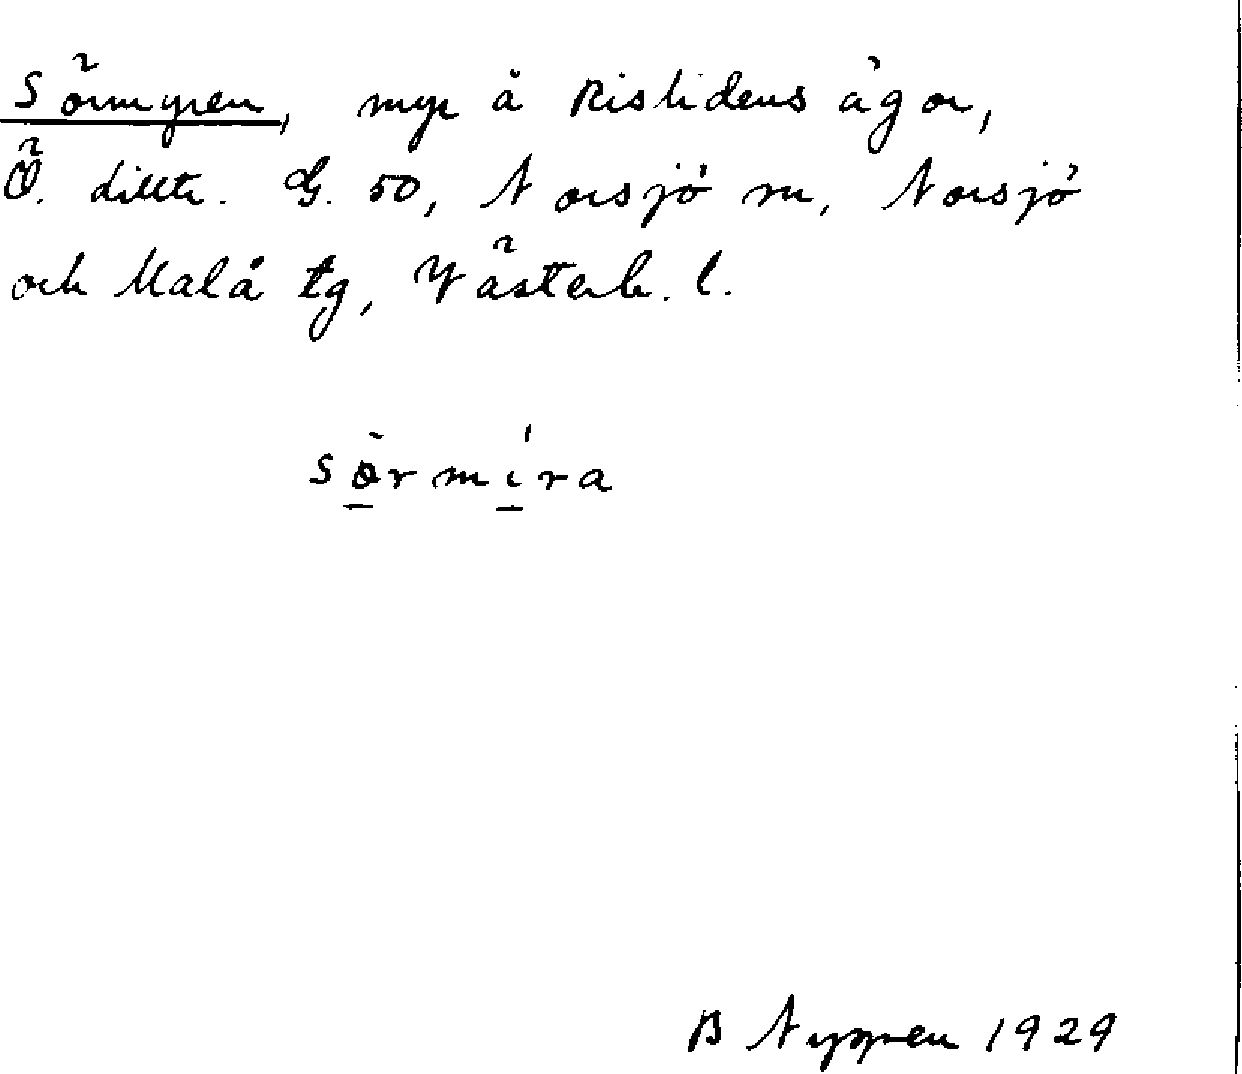 Sörmyren, myr å Rislidens ägor,
Ö. G. 50, Norsjö sn, Norsjö
och Malå tg, Västerb. l.
sörmira
B Nygren 1929